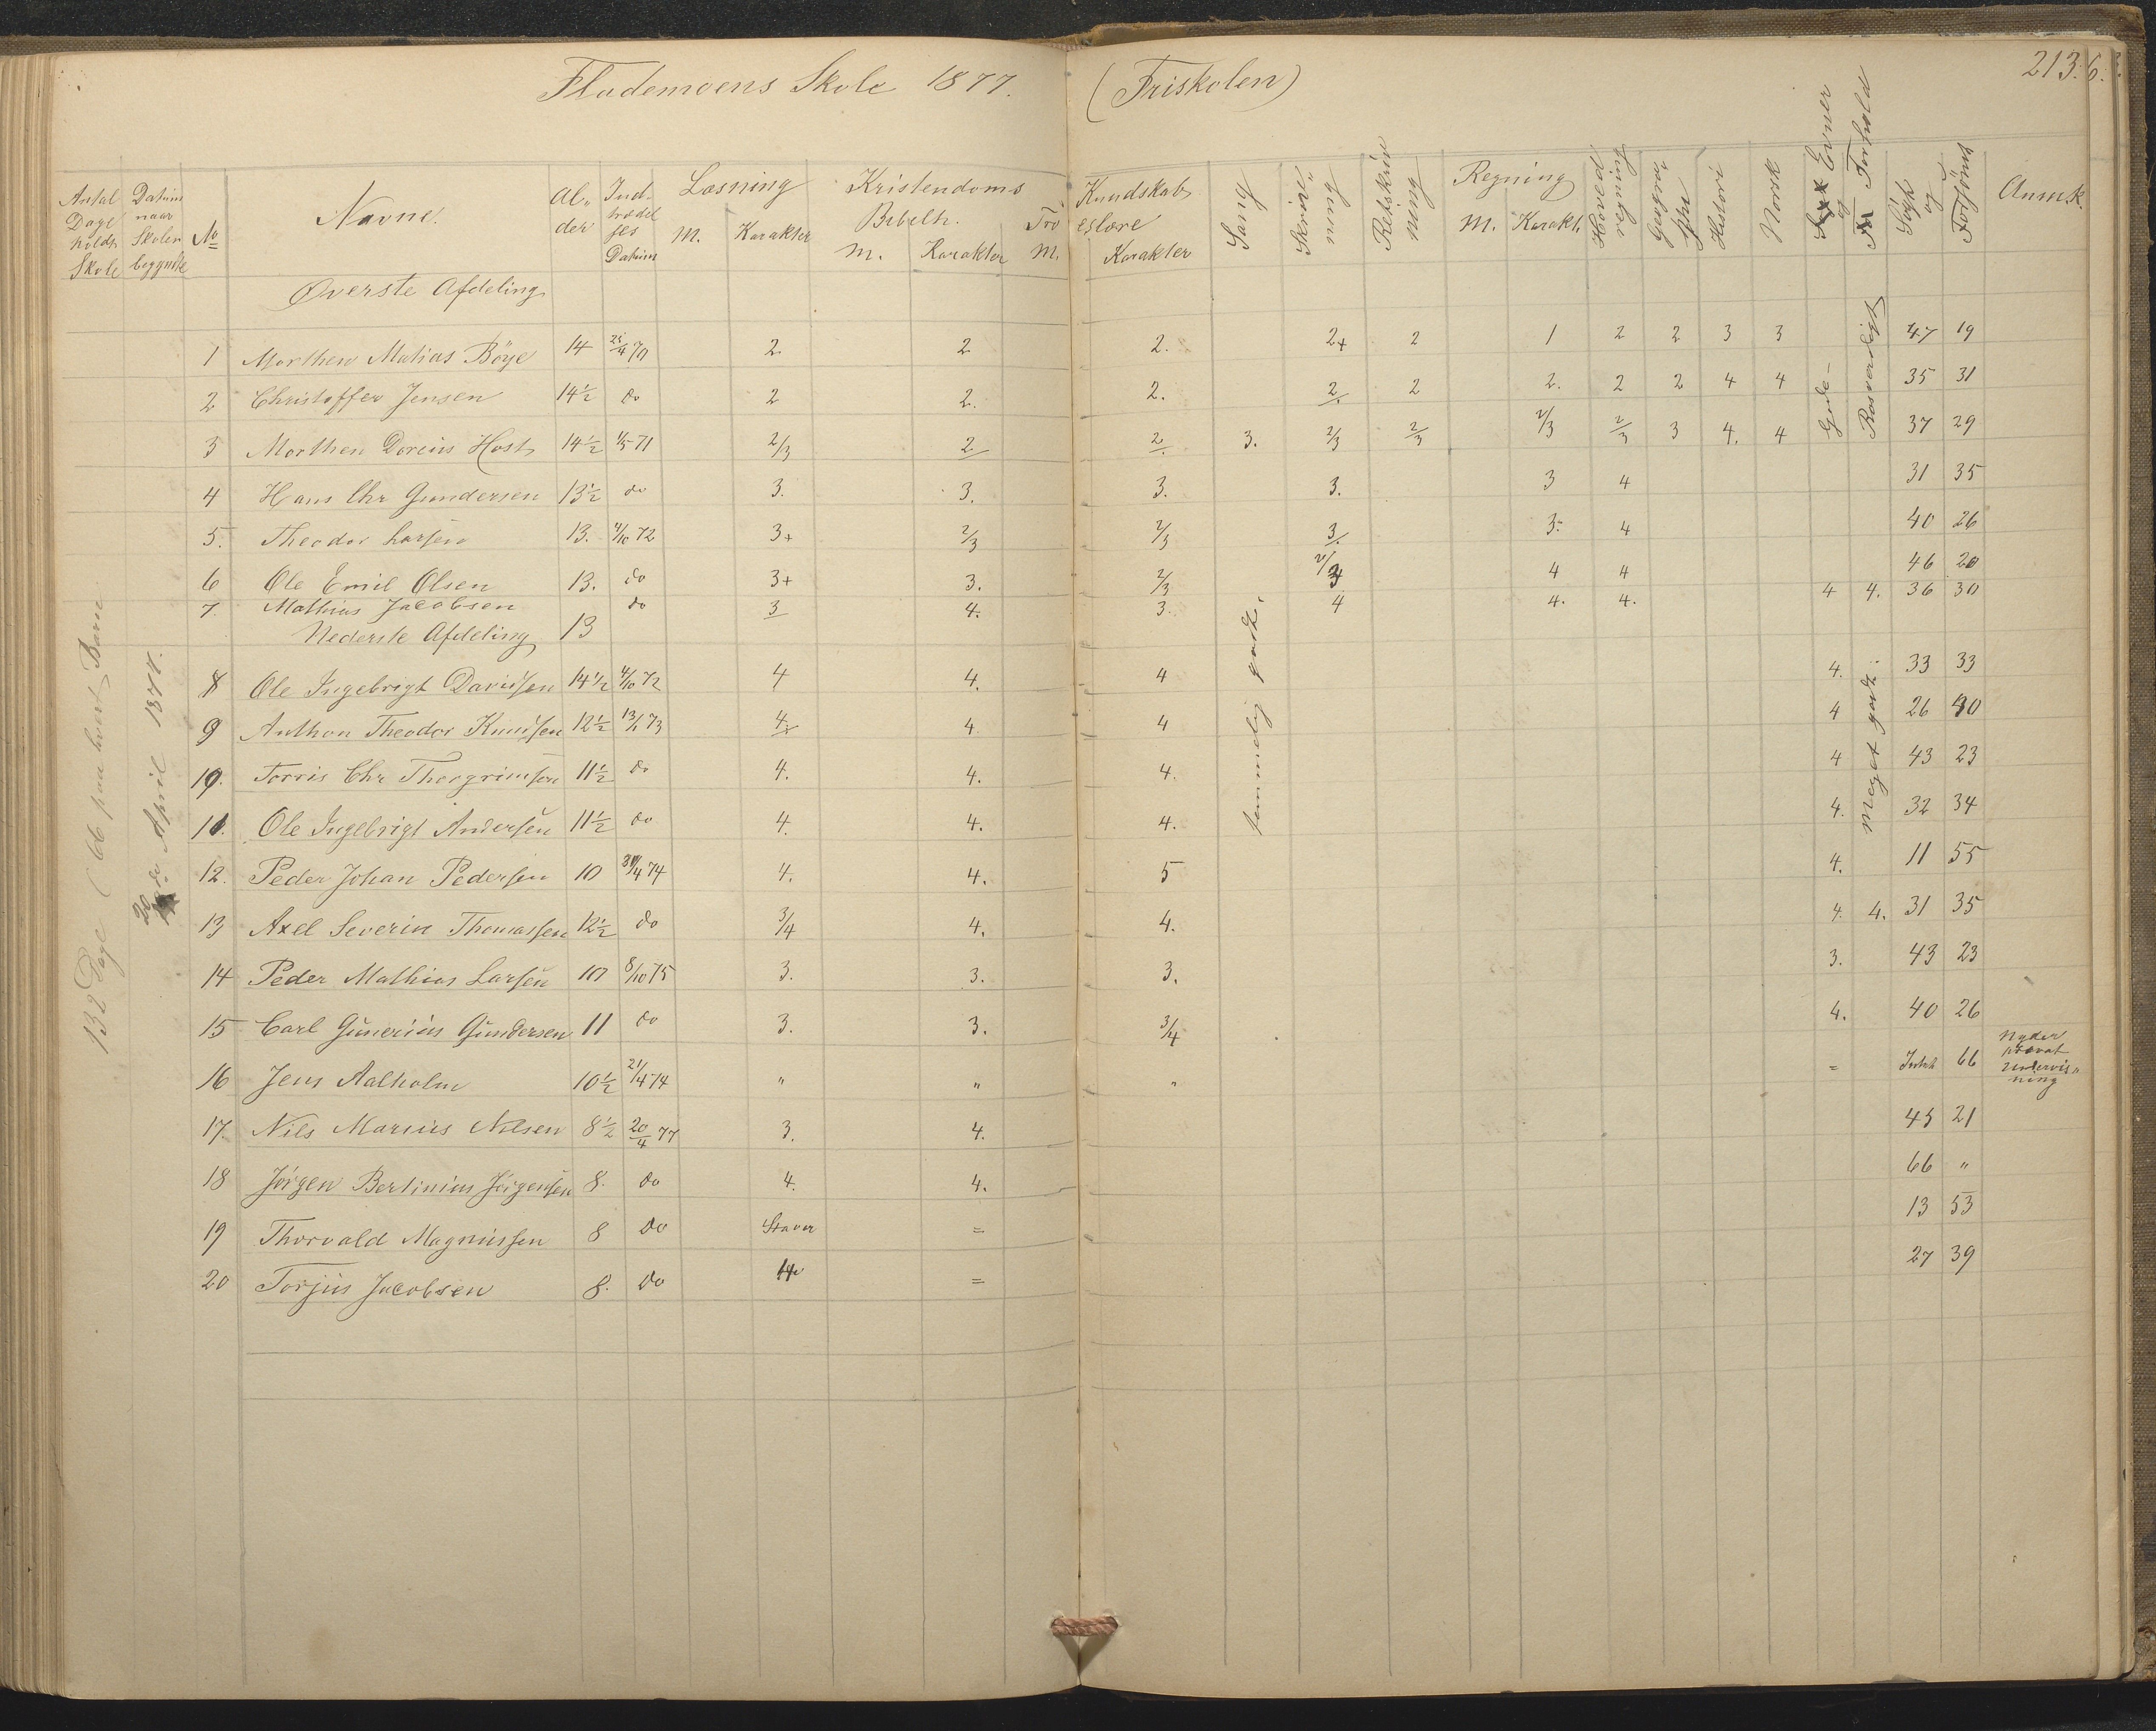 Flademoens Skole 1877. (Friskolen) 213.
Antal Dage holdt Skole
Datum naar Skolen begyndte
No
Navne.
Alder
Indtrædelses Datum
Læsning M. Karakter
Kristendoms Kundskab
Bibelh. M. Karakter
Troeslære M. Karakter
Sang
Skrivening
Retskrivning
Regning M. Karakt.
Hovedregning
Geografi
Histori
Norsk
Evner og Forhold
Søgt og Forsømt
Anmk.
132 Dage (66 paa hvert Barn
20de April 1877.
Øverste Afdeling
1 Morthen Matias Böye 14 70 2. 2 2. 2+ 2 1 2 2 3 3 47 19
2 Christoffer Jensen 14½ do 2 2. 2. 2. 2 2. 2 2 4 4 35 31
3 Morthen Doreius Host 14½ 1/5 71 2/3 2 2. 3. 2/3 2/3 2/3 2/3 3 4. 4 37 29
Gode - Rosværdigt
4 Hans Chr Gundersen 13½ do 3. 3. 3. 3. 3 4 31 35
5. Theodor Larsen 13. 4/10 72 3+ 2/3 2/3 3. 3. 4 40 26
6 Ole Emil Olsen 13. do 3+ 3. 2/3 4 4 46 20
7. Mathias Jacobsen 13 do 3 4. 3. 4 4. 4. 4 4. 36 30
Nederste Afdeling
temmelig godt.
meget godt.
8 Ole Ingebrigt Davidsen 14½ 4/10 72 4 4. 4 4. 33 33
9 Anthon Theodor Knudsen 12½ 13/1 73 4 4 4 26 40
10. Torris Chr Thorgrimsen 11½ do 4. 4. 4. 4 43 23
11. Ole Ingebrigt Andersen 11½ do 4. 4. 4. 4. 32 34
12. Peder Johan Pedersen 10 74 4. 4. 5 4. 11 55
13 Axel Severin Thomassen 12½ do 3/4 4. 4. 4. 4. 31 35
14 Peder Mathias Larsen 10 8/10 75 3. 3. 3. 3. 43 23
15 Carl Gunerius Gundersen 11 do 3. 3. 3/4 4. 40 26
16 Jens Aalholm 10½ 21/4 74 " " " = 66 Nyder privat undervisning
17. Nils Marius Nilsen 8½ 20/4 77 3. 4. 45 21
18 Jörgen Bertinius Jörgensen 8. do 4. 4. 66 "
19 Thorvald Magnussen 8 do Staver = 13 53
20 Torjus Jacobsen 8. do = 27 39